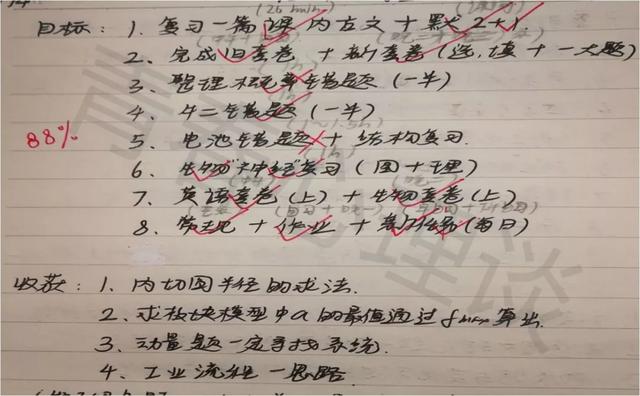 目标：1. 复习一篇课内古文 + 默 2+1
2. 完成旧套卷 + 新套卷（选，填 + 一大题）
3. 整理概率错题（一半）
4. 牛二错题（一半）
88%
5. 电池错题 + 结构复习.
6. 生物"神经"复习（图 + 理）
7. 英语套卷（上）+ 生物套卷（上）
8. 常规 + 作业 + 任务（每日）
收获：1. 内切圆半径的求法.
2. 求板块模型中a的最值通过fmax算出.
3. 动量题一定寻找系统.
4. 工业流程一思路